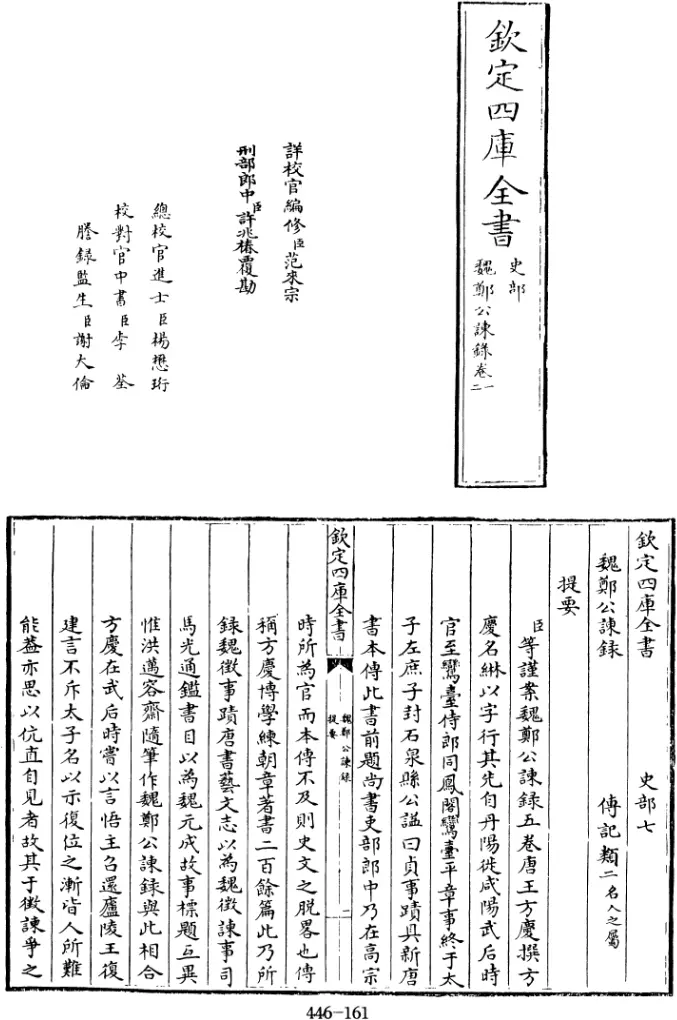 欽定四庫全書
史部
魏鄭公諫録卷一
二
詳校官編修臣范來宗
刑部郎中臣許兆椿覆勘
總校官進士臣楊懋珩
校對官中書臣李荃
謄録監生臣謝大倫
欽定四庫全書 史部七
魏鄭公諫録 傳記類二名人之屬
提要
臣等謹案魏鄭公諫録五卷唐王方慶撰方
慶名綝以字行其先自丹陽徙咸陽武后時
官至鸞臺侍郎同鳳閣鸞臺平章事終于太
子左庶子封石泉縣公謚曰貞事蹟具新唐
書本傳此書前題尚書吏部郎中乃在高宗
欽定四庫全書
魏鄭公諫録
提要
二
時所為官而本傳不及則史文之脱畧也傳
稱方慶博學練朝章著書二百餘篇此乃所
録魏徴事蹟唐書藝文志以為魏徴諫事司
馬光通鑑書目以為魏元成故事標題互異
惟洪邁容齋隨筆作魏鄭公諫録與此相合
方慶在武后時嘗以言悟主召還廬陵王復
建言不斥太子名以示復位之漸皆人所難
能葢亦思以伉直自見者故其于徴諫爭之
446-161